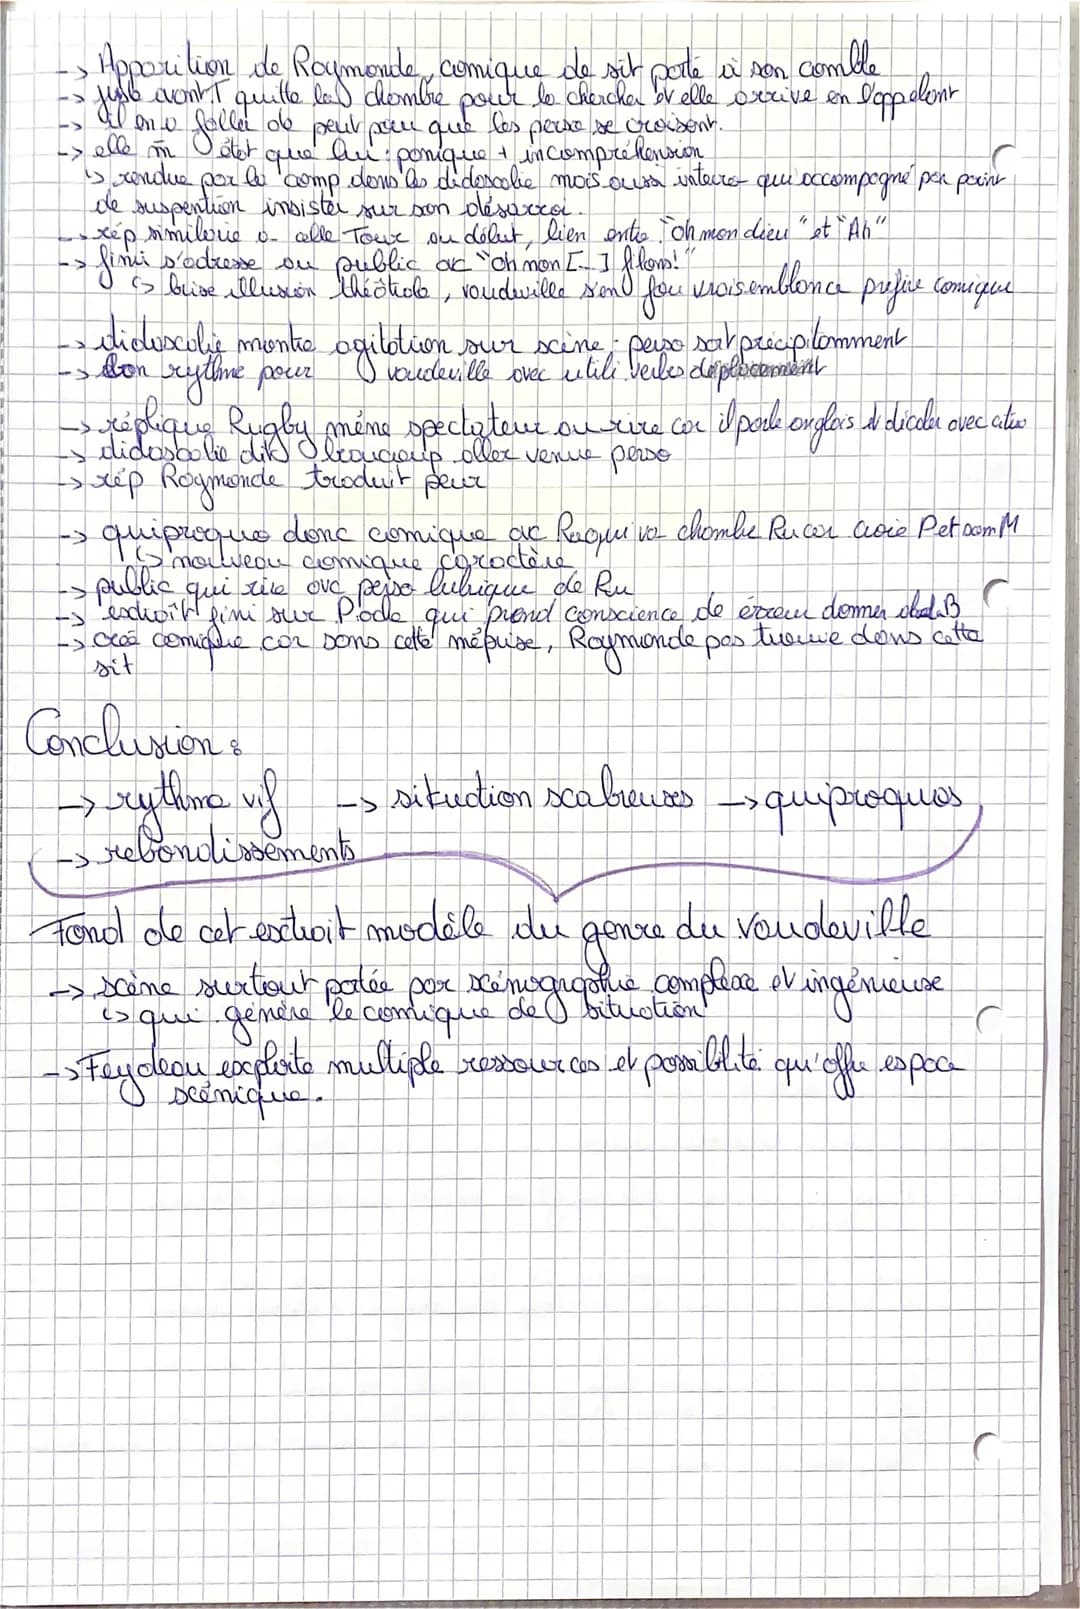 -> Apparition de Raymonde, comique de sit porté à son comble
-> juste avant T quitte la chambre pour la chercher et elle arrive en l'appelant
-> il en a fallei de peut pour que les perso se croisent.
-> elle m̄ état que lui : panique + incompréhension
↳ rendue par la comp dans les didascalie mais aussi interro qui accompagné par point
de suspention insister sur son désarroi.
-> rép similarie a celle Tour au début, lien entre "oh mon dieu" et "Ah"
-> fini s'adresse au public ac "Oh non [...] filons!"
↳ brise illusion théâtrale, vaudeville s'en fou vraisemblance préfère comique
-> didascalie montre agitation sur scène : perso sort précipitamment
-> bon rythme pour vaudeville avec utili verbes déplacement
-> réplique Rugby mène spectateur au rire car il parle anglais et décaler avec
-> didascalie dit beaucoup aller venue perso
-> rép Raymonde traduit peur
-> quiproquo donc comique ac Ra qui va chambre Ru car croie P et dom M
↳ nouveau comique caractère
-> public qui rire avc perso lubrique de Ru
-> extrait fini sur P.ode qui prend conscience de erreur donner
-> créé comique car sans cette méprise, Raymonde pas trouve dans cette
sit
Conclusion :
-> rythme vif -> situation scabreuses -> quiproquos
-> rebondissements
Fond de cet extrait modèle du genre du vaudeville
-> scène surtout portée par scénographie complexe et ingénieuse
↳ qui génère le comique de situation
-> Feydeau exploite multiple ressources et possibilité qu'offre espace
scénique.